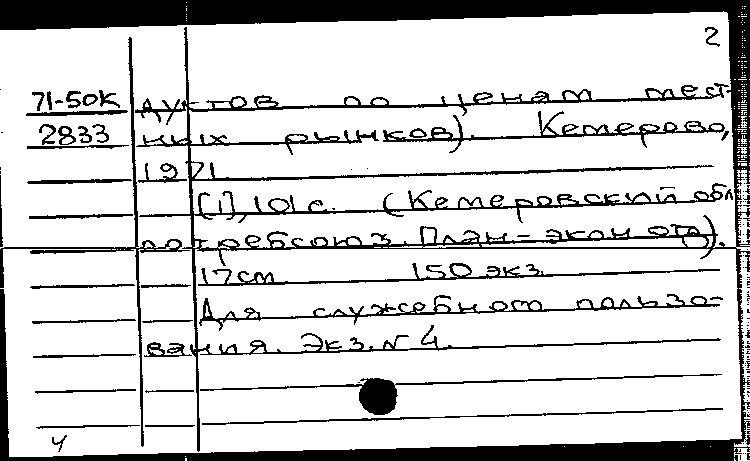 2
71-50К дуктов по ценам мест-
2833 ных рынков). Кемерово,
1971.
[1], 101 с. (Кемеровский обл
потребсоюз. План-экон отд).
17см 150 экз.
Для служебного пользо-
вания. Экз. № 4.
ч